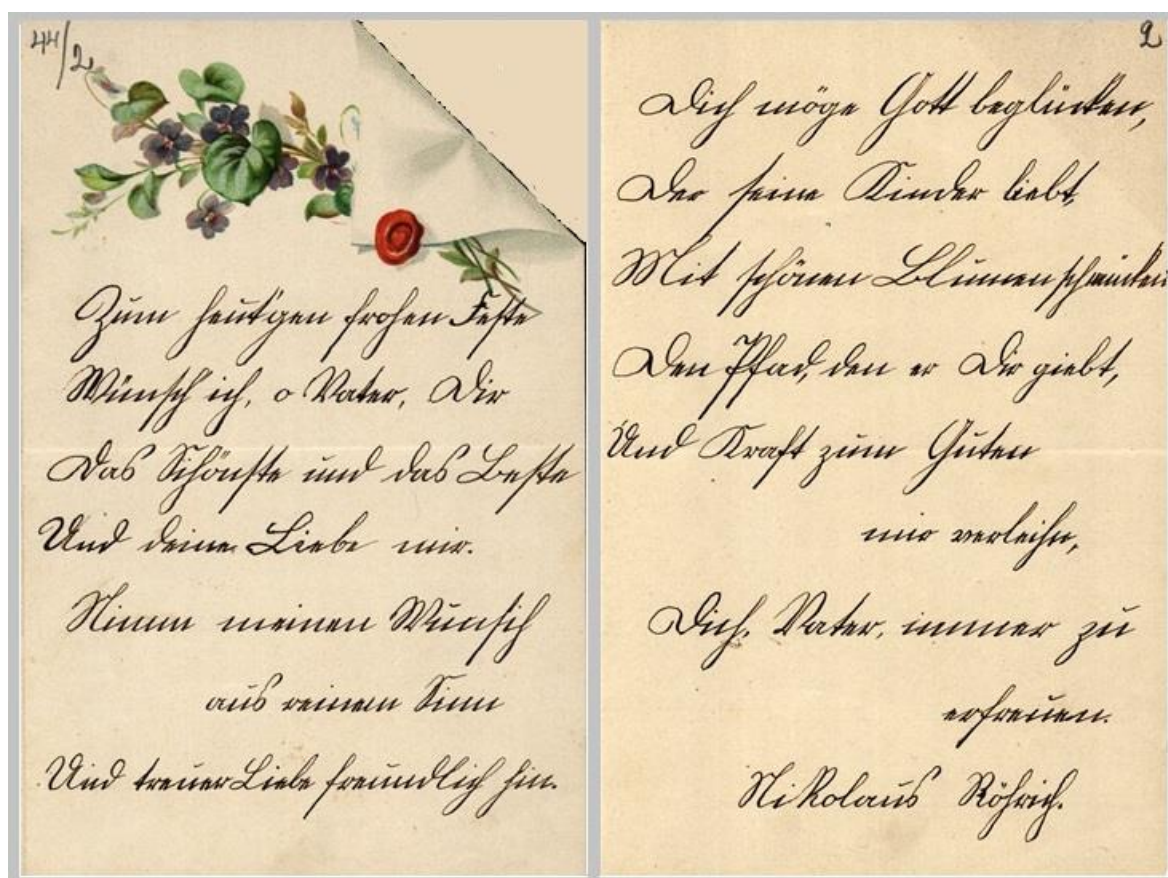 44/2
Zum heut'gen frohen Feste
Wünsch ich, o Vater, Dir
Das Schönste und das Beste
Und deine Liebe mir.
Nimm meinen Wunsch
aus reinem Sinn
Und treuer Liebe freundlich hin.
2
Dich möge Gott beglücken,
Der seine Kinder liebt,
Mit schönen Blumen schmücken
Den Pfad, den er Dir giebt,
Und Kraft zum Guten
mir verleihn,
Dich, Vater, immer zu
erfreuen.
Nikolaus Röhrich.